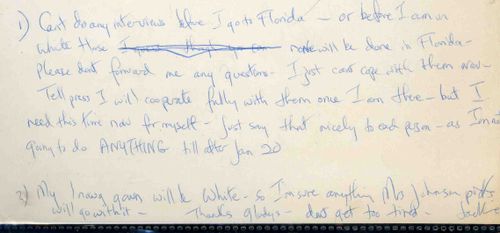 1) Can't do any interviews before I go to Florida - or before I am in
White House none will be done in Florida -
Please don't forward me any questions - I just can't cope with them now -
Tell press I will cooperate fully with them once I am there - but I
need this time now for myself - Just say that nicely to each person - as I'm not
going to do ANYTHING till after Jan 20
2) My Inaug gown will be White - so I'm sure anything Mrs Johnson picks
will go with it - Thanks Gladys - don't get too tired - Jackie